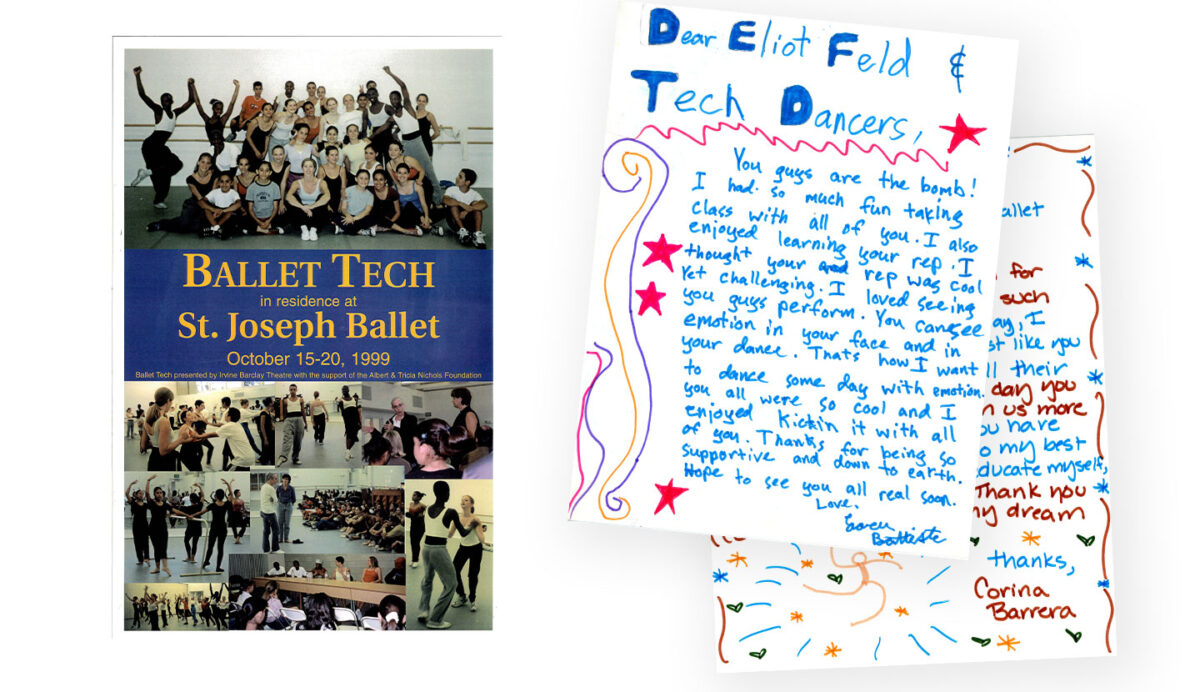 BALLET TECH
in residence at
St. Joseph Ballet
October 15-20, 1999
Ballet Tech presented by Irvine Barclay Theatre with the support of the Albert & Tricia Nichols Foundation
Dear Eliot Feld &
Tech Dancers,
You guys are the bomb!
I had so much fun taking
class with all of you. I also
enjoyed learning your rep. I
thought your rep was cool
Yet challenging. I loved seeing
you guys perform. You can see
emotion in your face and in
your dance. Thats how I want
to dance some day with emotion.
you all were so cool and I
enjoyed Kickin it with all
of you. Thanks for being so
supportive and down to earth.
Hope to see you all real soon.
Love,
Battiste
allet
for
such
ay, I
st like you
ll their
day you
n us more
ou have
o my best
ducate myself,
Thank you
my dream
thanks,
Corina
Barrera